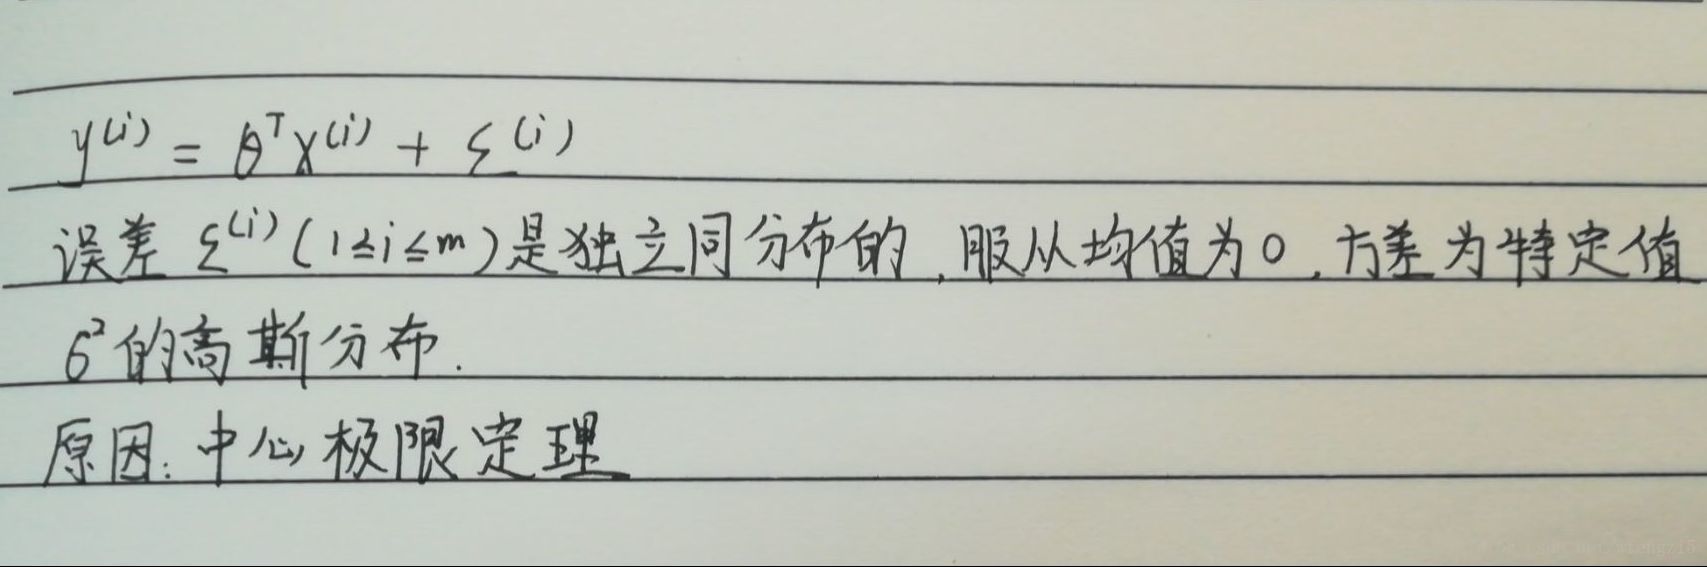 y⁽ⁱ⁾ = θᵀx⁽ⁱ⁾ + ε⁽ⁱ⁾
误差 ε⁽ⁱ⁾(1≤i≤m)是独立同分布的,服从均值为0,方差为特定值
σ²的高斯分布.
原因:中心极限定理